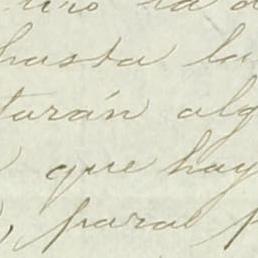 la
hasta la
tarán alg
que hay
, para p